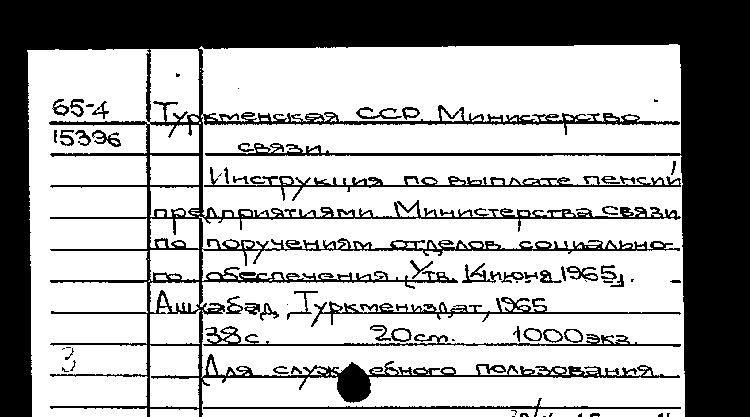 65-4 Туркменская ССР. Министерство
15396 связи.
Инструкция по выплате пенсий
предприятиями Министерства связи
по поручениям отделов социально-
го обеспечения. [Утв. 14 июня 1965].
Ашхабад, Туркмениздат, 1965
38 с. 20 см. 1000 экз.
3 Для служебного пользования.